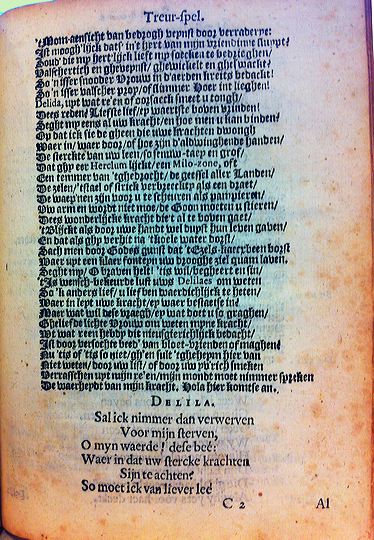 Treur-spel.
't Mom-aensicht van bedrogh veynst door verraderye:
Ist moogh'lijck dats' in't hert van mijn vriendinne sluypt?
Soud' die my hert'lijck lieft my soecken te bedrieghen/
Valscherrich en gheveynst/ ghewickelt en ghewackt/
So'n isser snooder Vrouw in d'aerden kreits bedacht!
So'n isser valscher prop/ of slimmer Hoer int lieghen!
Delida, wat re'en of oorsaeck smeet u tongh/
Dees reden? Liefste lief/ ey waertste boven vrinden!
Seght my eens al uw kracht/ en hoe men u kan binden?
Op dat ick sie de gheen die uwe krachten dwongh
Waer in/ waer door/ of hoe zijn d'aldwinghende handen/
De stercke van uw leen/ so senuw-taey en grof/
Dat ghy een Herclum lijckt/ een Milo-zone, oft
Een temmer van 't ghedrocht/ de geessel aller Landen/
De zelen/ 't stael of strick verbreeckty als een draet/
De wap'nen zijn voor u te scheuren als pampieren/
Uw arm en wordt niet moe/ de Goon moeten u stieren/
Dees wonderlijcke kracht die't al te boven gaet/
't Blijckt als door uwe handt wel duyst hun leven gaven/
En dat als ghy verhit na 't koele water dorst/
Sach men door Godes gunst dat 't Ezels-kaeckebeen borst
Waer upt een klaer fonteyn uw drooghe ziel quam laven.
Seght my/ O braven helt! 'tis wil/ begheert en sin/
't Is wensch-bekeurde lust uws Delilaes om weten
So 'k anders lief/ u lief ben waerdichlijck te heten/
Waer in leyt uwe kracht/ ey waer bestaetse in?
Maer wat wil dese vraegh/ ey wat doet u so graghen/
Ghelief de lichte Vrouw om weten myne kracht/
Wt wat reen hebdy dit nieusgierichlijck bedacht/
Ist door versochte bed' van bloet-vrienden of maghen?
Nu 'tis of 'tis so niet/ gh'en sult 'tgheheym hier van
Niet weten/ door uw list/ of door uw vrich smeken
Verrasschen upt mijn re'en/ mijn mondt moet nimmer spreken
De waerheydt van mijn kracht. Hola hier komtse an.
DELILA.
Sal ick nimmer dan verwerven
Voor mijn sterven,
O myn waerde! dese beê:
Waer in dat uw stercke krachten
Sijn te achten?
So moet ick van liever leê
C 2
Al